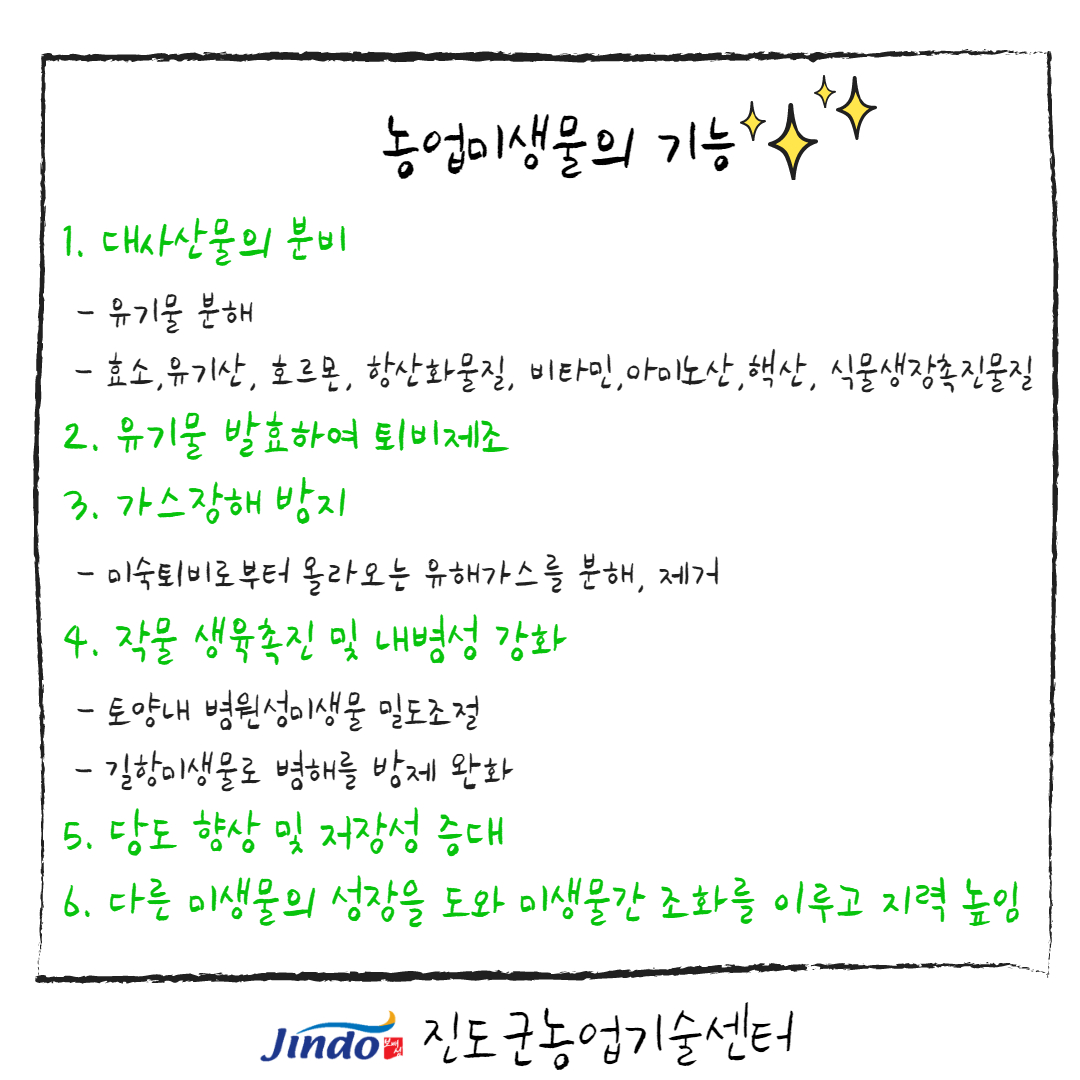 농업미생물의 기능
1. 대사산물의 분비
- 유기물 분해
- 효소,유기산, 호르몬, 항산화물질, 비타민,아미노산,핵산, 식물생장촉진물질
2. 유기물 발효하여 퇴비제조
3. 가스장해 방지
- 미숙퇴비로부터 올라오는 유해가스를 분해, 제거
4. 작물 생육촉진 및 내병성 강화
- 토양내 병원성미생물 밀도조절
- 길항미생물로 병해를 방제 완화
5. 당도 향상 및 저장성 증대
6. 다른 미생물의 성장을 도와 미생물간 조화를 이루고 지력 높임
Jindo 진도군농업기술센터